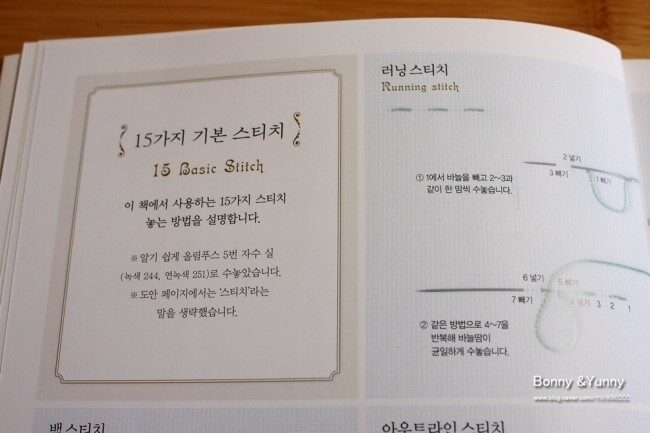 15가지 기본 스티치
15 Basic Stitch
이 책에서 사용하는 15가지 스티치
놓는 방법을 설명합니다.
※ 알기 쉽게 올림푸스 5번 자수 실
(녹색 244, 연녹색 251)로 수놓았습니다.
※ 도안 페이지에서는 '스티치'라는
말을 생략했습니다.
러닝 스티치
Running stitch
2 넣기
3 빼기
1 빼기
① 1에서 바늘을 빼고 2~3과
같이 한 땀씩 수놓습니다.
6 넣기
5 빼기
7 빼기
4 넣기 3 2 1
② 같은 방법으로 4~7을
반복해 바늘땀이
균일하게 수놓습니다.
백 스티치
아우트라인 스티치
Bonny & Yunny
www.blog.naver.com/mink96000